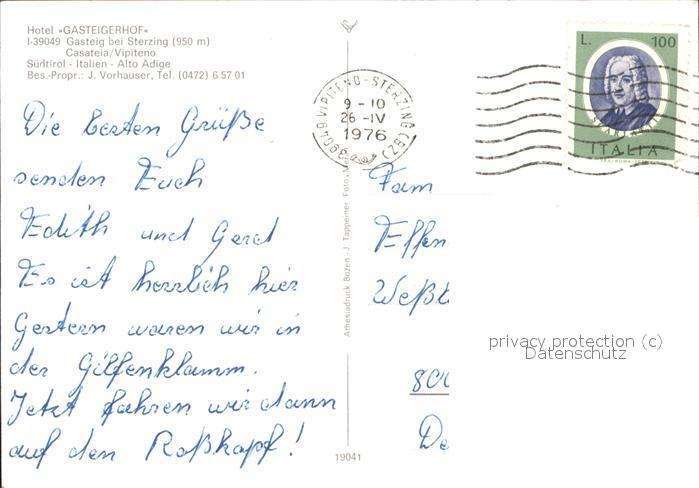 Hotel «GASTEIGERHOF»
I-39049 Gasteig bei Sterzing (950 m)
Casateia/Vipiteno
Südtirol - Italien - Alto Adige
Bes.-Propr.: J. Vorhauser, Tel. (0472) 6 57 01
Die besten Grüße
senden Euch
Edith und Gerd
Es ist herrlich hier
Gestern waren wir in
der Gilfenklamm.
Jetzt fahren wir dann
auf den Roßkopf!
39049 VIPITENO-STERZING (BZ)
9 - 10
26 - IV
1976
L. 100
ITALIA
Fam
Effen
800
De
privacy protection (c)
Datenschutz
Athesiadruck Bozen - J. Tappeiner
19041